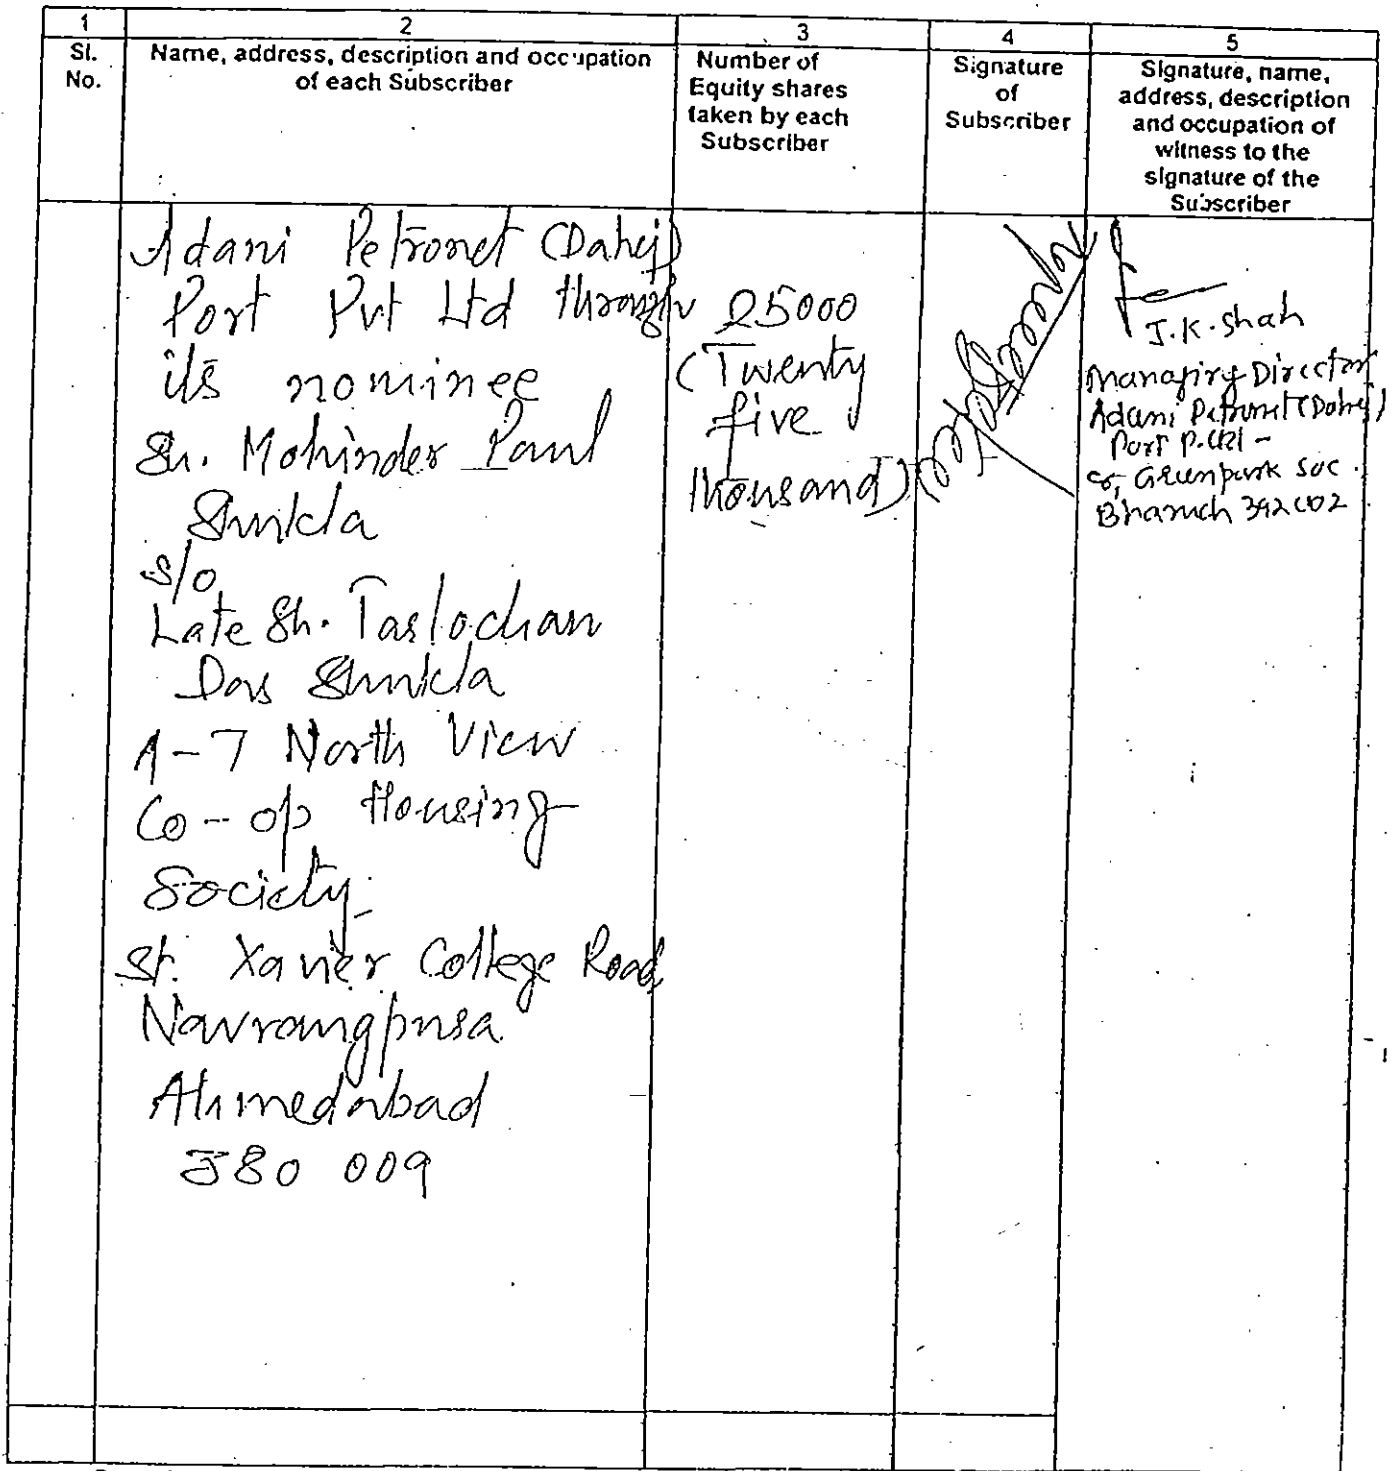 1 2 3 4 5
Sl.
No.
Name, address, description and occupation
of each Subscriber
Number of
Equity shares
taken by each
Subscriber
Signature
of
Subscriber
Signature, name,
address, description
and occupation of
witness to the
signature of the
Subscriber
Adani Petronet (Dahej)
Port Pvt Ltd through
its nominee
Sh. Mohinder Paul
Shukla
s/o
Late Sh. Tarlochan
Das Shukla
A-7 North View
Co-op Housing
Society
St. Xavier College Road
Navrangpura
Ahmedabad
380 009
25000
(Twenty
five
thousand)
J.K. Shah
Managing Director
Adani Petronet (Dahej)
Port P. Ltd -
Greenpark Soc.
Bharuch 392002